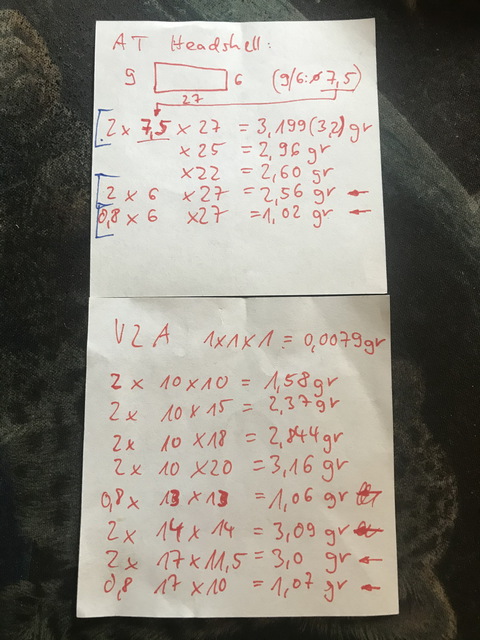 AT Headshell:
9 6 (9/6:ø 7,5)
27
2 x 7,5 x 27 = 3,199(3,2) gr
x 25 = 2,96 gr
x 22 = 2,60 gr
2 x 6 x 27 = 2,56 gr ←
0,8 x 6 x 27 = 1,02 gr ←
V2A 1x1x1 = 0,0079 gr
2 x 10 x 10 = 1,58 gr
2 x 10 x 15 = 2,37 gr
2 x 10 x 18 = 2,844 gr
2 x 10 x 20 = 3,16 gr
0,8 x 13 x 13 = 1,06 gr
2 x 14 x 14 = 3,09 gr
2 x 17 x 11,5 = 3,0 gr ←
0,8 17 x 10 = 1,07 gr ←